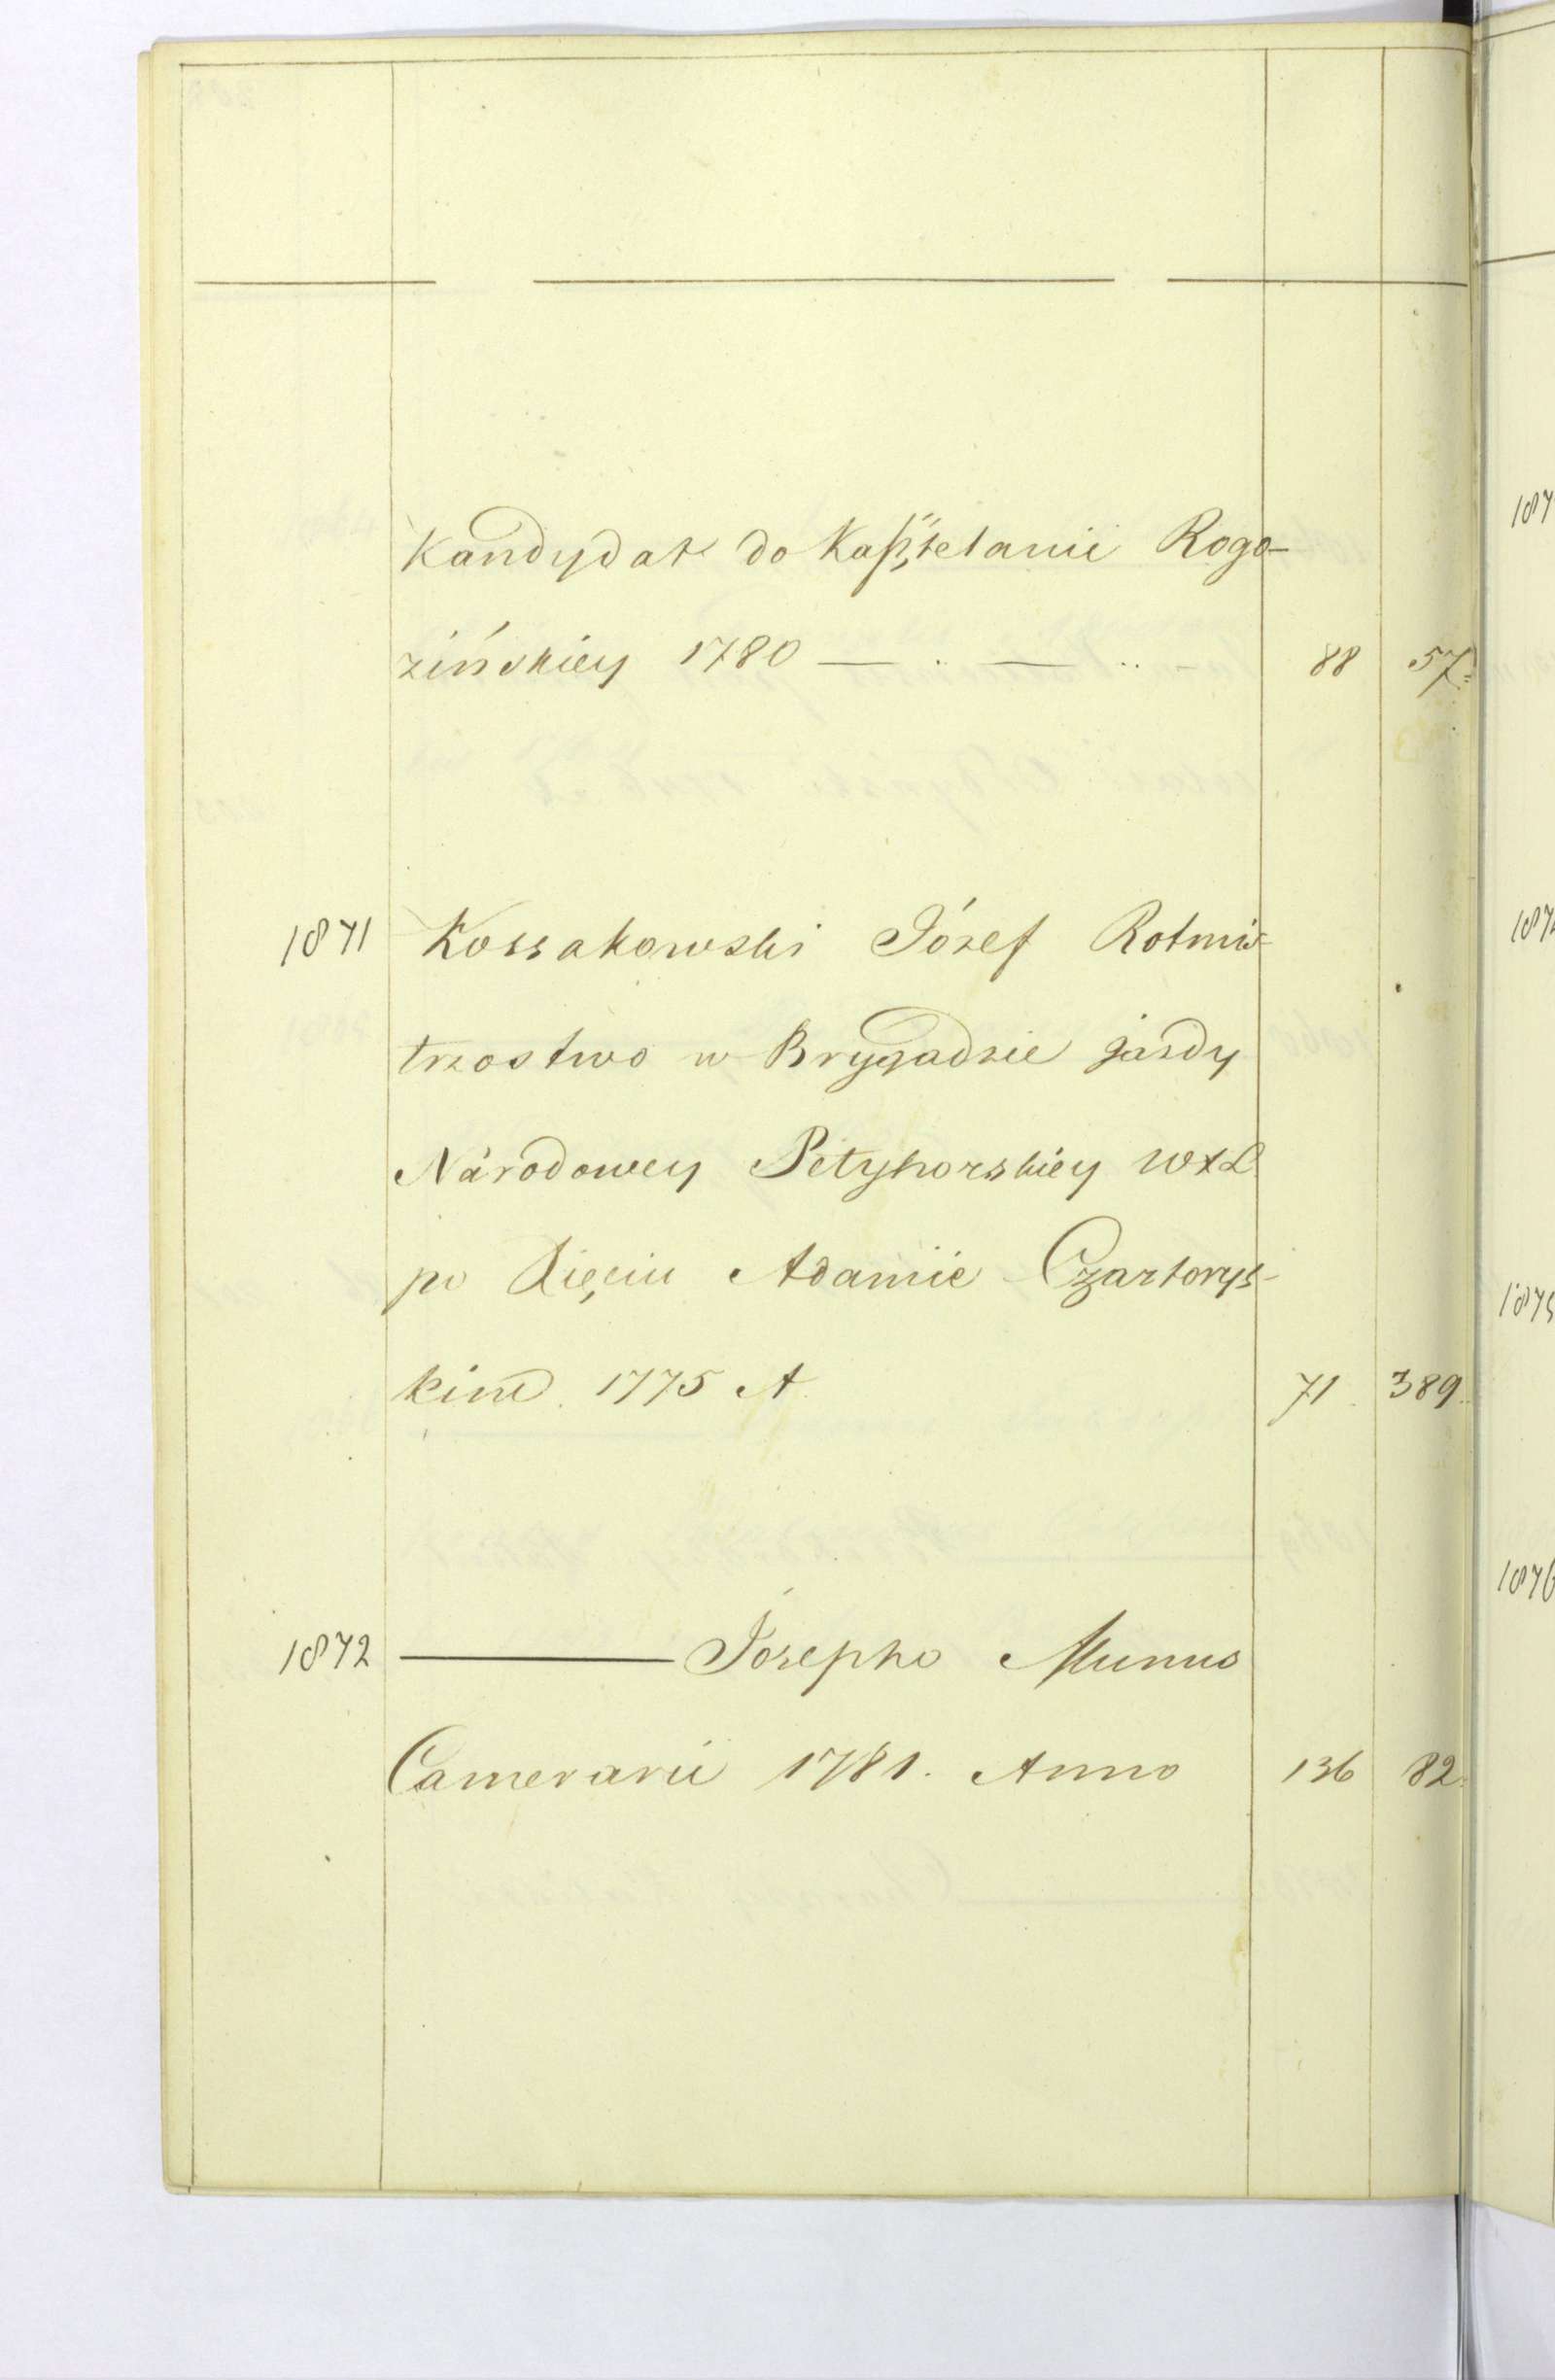 Kandydat do Kasztelanii Rogo-
zińskiey 1780 — .. — .. 88 57
1871 Kossakowski Józef Rotmis-
trzostwo w Brygadzie jazdy
Narodowey Petyhorskiey WXL
po Xięciu Adamie Czartorys-
kim 1775 A 71 389
1872 ——— Josepho Munus
Camerarii 1781. Anno 136 82